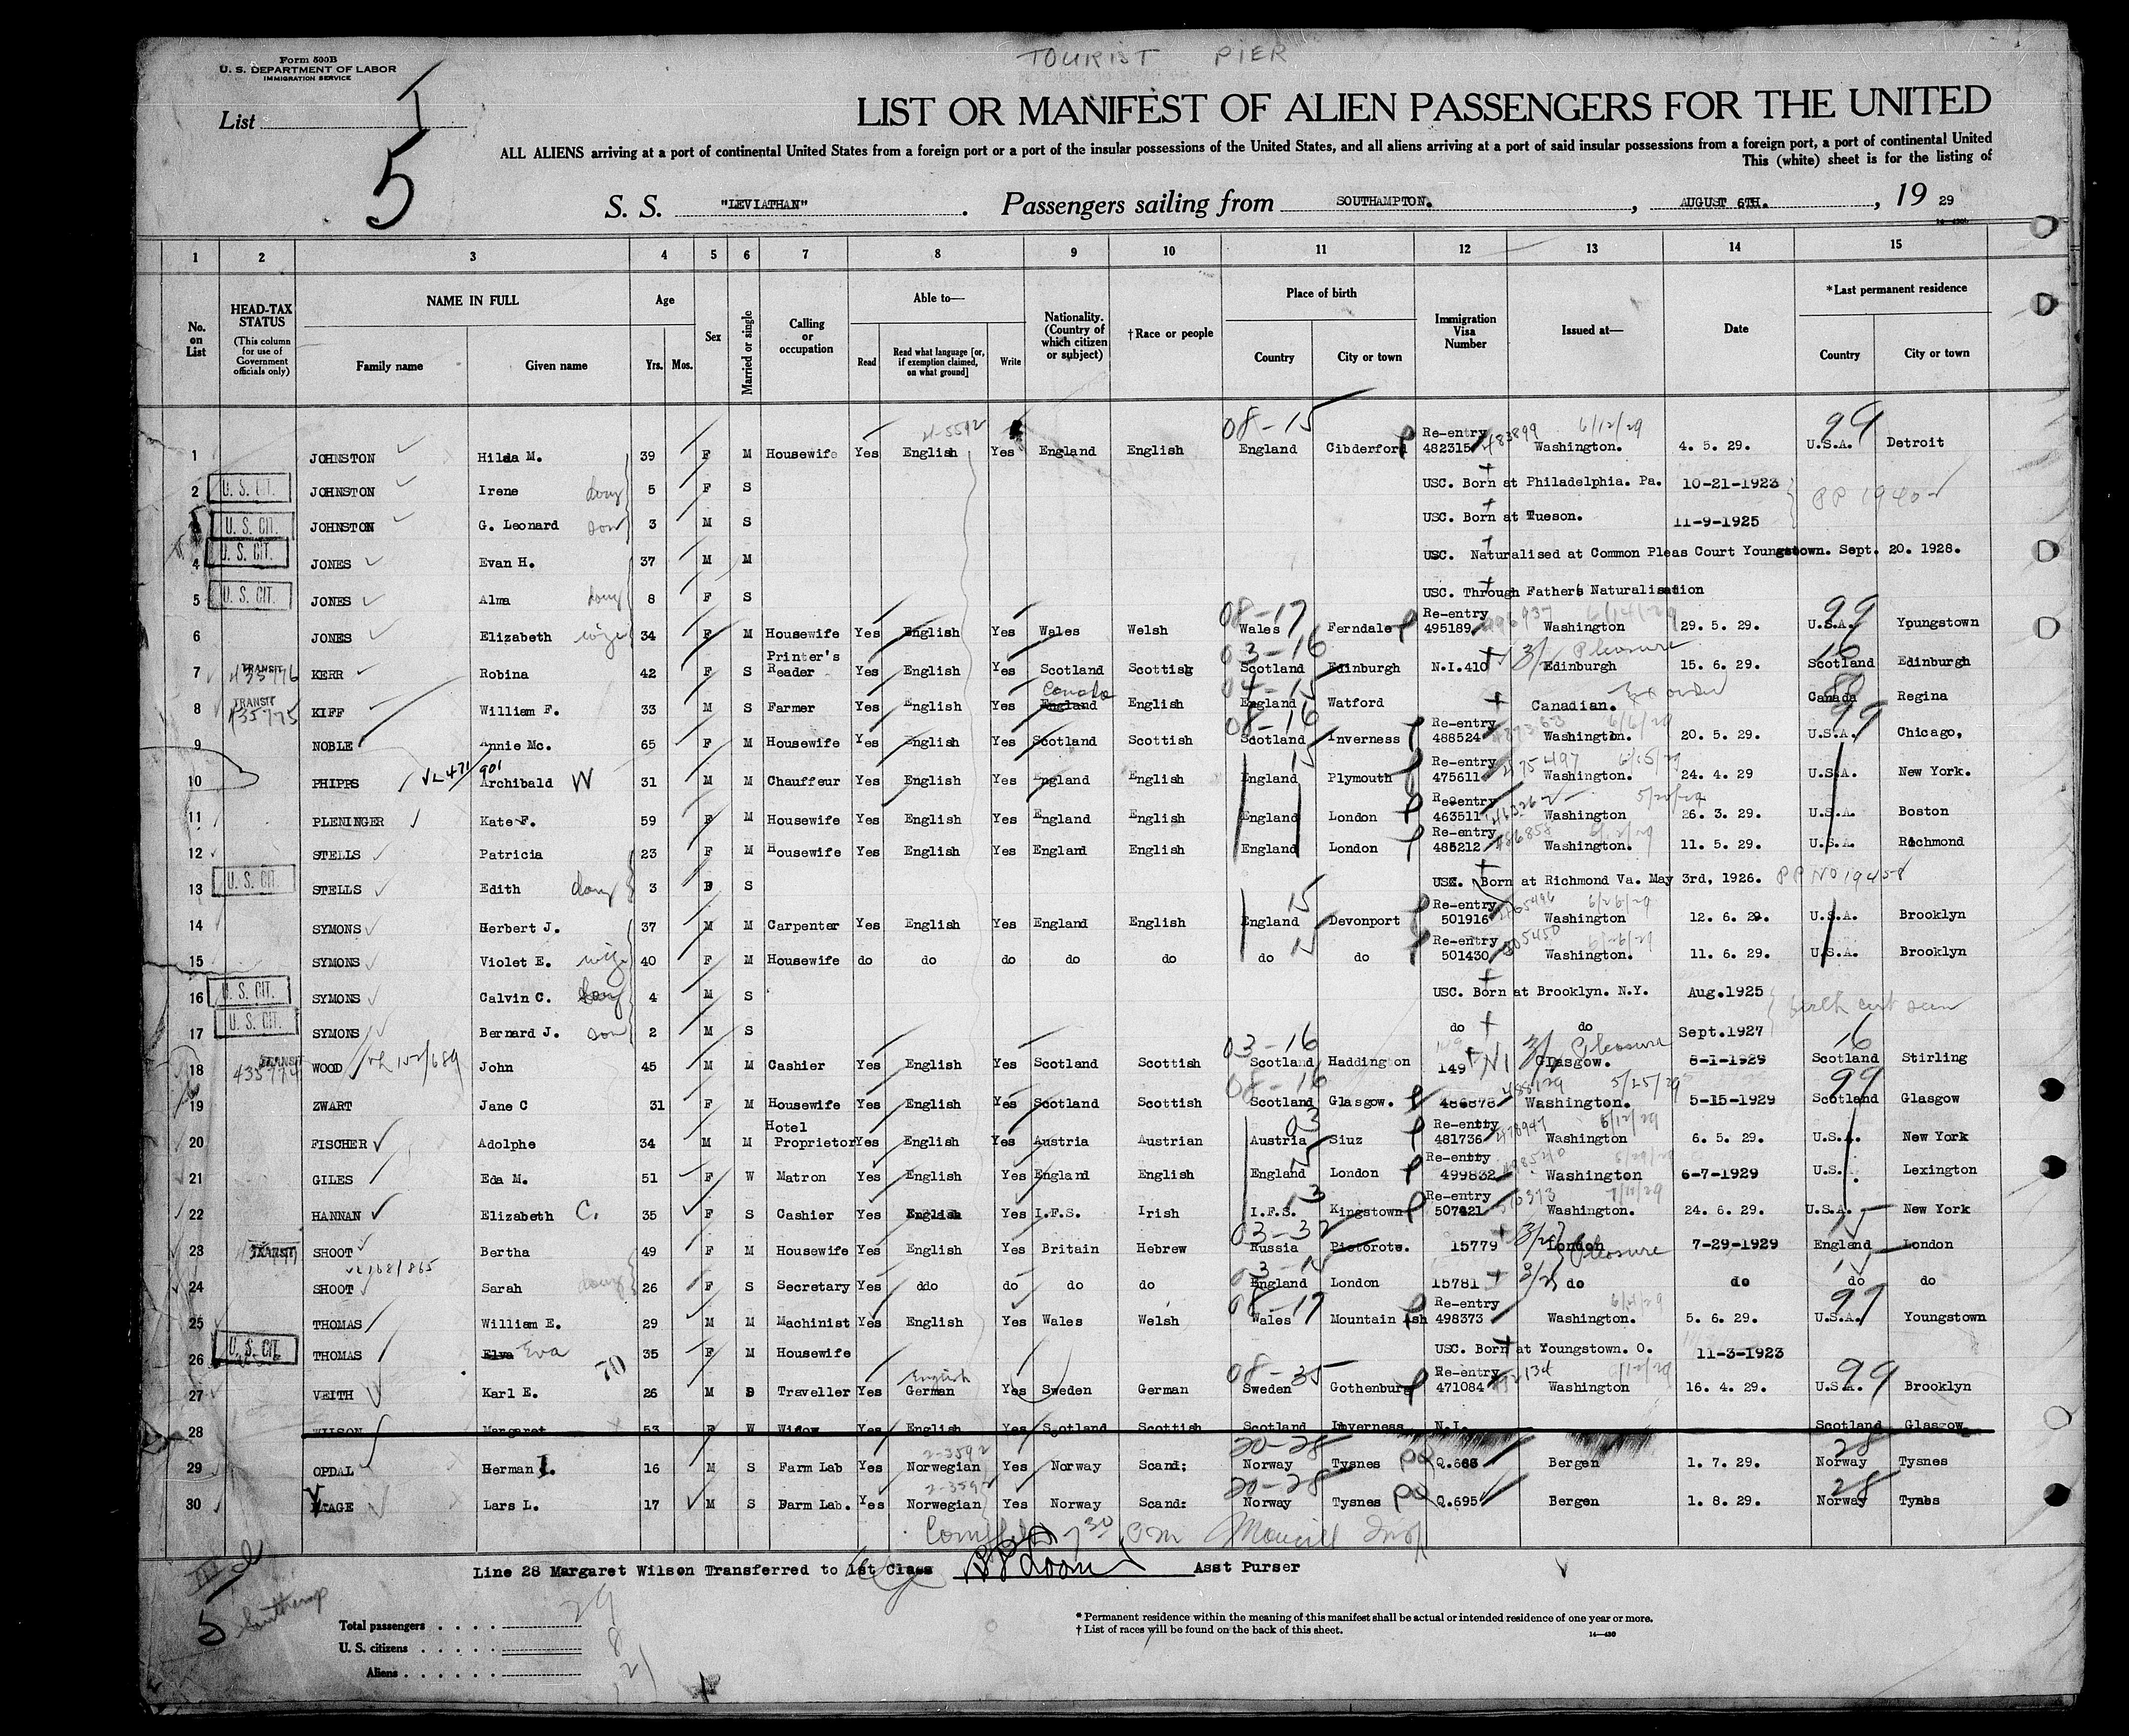 TOURIST PIER
Form 500B
U. S. DEPARTMENT OF LABOR
IMMIGRATION SERVICE
List 5
LIST OR MANIFEST OF ALIEN PASSENGERS FOR THE UNITED
ALL ALIENS arriving at a port of continental United States from a foreign port or a port of the insular possessions of the United States, and all aliens arriving at a port of said insular possessions from a foreign port, a port of continental United
This (white) sheet is for the listing of
S. S. "LEVIATHAN" . Passengers sailing from SOUTHAMPTON. , AUGUST 6TH. , 19 29
1 2 3 4 5 6 7 8 9 10 11 12 13 14 15
No. on List
HEAD-TAX STATUS (This column for use of Government officials only)
NAME IN FULL Family name Given name
Age Yrs. Mos.
Sex
Married or single
Calling or occupation
Able to— Read Read what language [or, if exemption claimed, on what ground] Write
Nationality. (Country of which citizen or subject)
†Race or people
Place of birth Country City or town
Immigration Visa Number
Issued at—
Date
*Last permanent residence Country City or town
1 JOHNSTON Hilda M. 39 F M Housewife Yes English Yes England English 08-15 England Cibderford Re-entry 482315 483899 Washington. 6/12/29 4. 5. 29. 99 U.S.A. Detroit
2 U. S. CIT. JOHNSTON Irene 5 F S USC. Born at Philadelphia. Pa. 10-21-1923
3 U. S. CIT. JOHNSTON G. Leonard son 3 M S USC. Born at Tueson. 11-9-1925
4 U. S. CIT. JONES Evan H. 37 M M USC. Naturalised at Common Pleas Court Youngstown. Sept. 20. 1928.
5 U. S. CIT. JONES Alma 8 F S USC. Through Fathers Naturalisation
6 JONES Elizabeth wife 34 F M Housewife Yes English Yes Wales Welsh 08-17 Wales Ferndale Re-entry 495189 Washington 6/14/29 29. 5. 29. 99 U.S.A. Youngstown
7 TRANSIT 435776 KERR Robina 42 F S Printer's Reader Yes English Yes Scotland Scottish 03-16 Scotland Edinburgh N.I.410 Edinburgh Pleasure 15. 6. 29. 16 Scotland Edinburgh
8 TRANSIT 435775 KIFF William F. 33 M S Farmer Yes English Yes England Canada English England Watford Canadian. Canada Regina
9 NOBLE Annie Mc. 65 F M Housewife Yes English Yes Scotland Scottish 08-16 Scotland Inverness Re-entry 488524 Washington. 6/6/29 20. 5. 29. 99 U.S.A. Chicago,
10 PHIPPS VL 471/901 Archibald W 31 M M Chauffeur Yes English Yes England English 15 England Plymouth Re-entry 475611 475497 Washington. 24. 4. 29 U.S.A. New York.
11 PLENINGER Kate F. 59 F M Housewife Yes English Yes England English England London Re-entry 463511 Washington 26. 3. 29. U.S.A. Boston
12 STELLS Patricia 23 F M Housewife Yes English Yes England English England London Re-entry 485212 Washington. 11. 5. 29. U.S.A. Richmond
13 U. S. CIT. STELLS Edith 3 F S Born at Richmond Va. May 3rd, 1926.
14 SYMONS Herbert J. 37 M M Carpenter Yes English Yes England English 15 England Devonport Re-entry 501916 Washington 6/26/29 12. 6. 29. U.S.A. Brooklyn
15 SYMONS Violet E. wife 40 F M Housewife do do do do do do 15 do Re-entry 501430 505450 Washington. 6/26/29 11. 6. 29. U.S.A. Brooklyn
16 U. S. CIT. SYMONS Calvin C. 4 M S USC. Born at Brooklyn. N.Y. Aug.1925 birth cert seen
17 U. S. CIT. SYMONS Bernard J. son 2 M S do do Sept.1927
18 TRANSIT 435774 WOOD John 45 M M Cashier Yes English Yes Scotland Scottish 03-16 Scotland Haddington 149 NI Glasgow. Pleasure 8-1-1929 16 Scotland Stirling
19 ZWART Jane C 31 F M Housewife Yes English Yes Scotland Scottish 08-16 Scotland Glasgow. 486878 Washington. 5/25/29 5-15-1929 99 Scotland Glasgow
20 FISCHER Adolphe 34 M M Hotel Proprietor Yes English Yes Austria Austrian 03 Austria Siuz Re-entry 481736 478947 Washington 6/12/29 6. 5. 29. U.S.A. New York
21 GILES Eda M. 51 F W Matron Yes English Yes England English England London Re-entry 499832 Washington 6-7-1929 U.S. Lexington
22 HANNAN Elizabeth C. 35 F S Cashier Yes English Yes I.F.S. Irish I.F.S. Kingstown Re-entry 507421 Washington. 24. 6. 29. U.S.A. New York
23 TRANSIT SHOOT Bertha 49 F M Housewife Yes English Yes Britain Hebrew 03-32 Russia Pictorote. 15779 London Pleasure 7-29-1929 England London
24 SHOOT Sarah 26 F S Secretary Yes ddo do do do England London 15781 do do do do
25 THOMAS William E. 29 M M Machinist Yes English Yes Wales Welsh 08-17 Wales Mountain Ash Re-entry 498373 Washington. 5. 6. 29. 99 U.S.A. Youngstown
26 U. S. CIT. THOMAS Elva Eva 35 F M Housewife USC. Born at Youngstown. O. 11-3-1923
27 VEITH Karl E. 26 M D Traveller Yes English German Yes Sweden German 08-35 Sweden Gothenburg Re-entry 471084 Washington 16. 4. 29. 99 U.S.A. Brooklyn
28 WILSON Margaret 53 F W Widow Yes English Yes Scotland Scottish Scotland Inverness N.I. Scotland Glasgow
29 OPDAL Herman I. 16 M S Farm Lab Yes Norwegian Yes Norway Scand: 20-28 Norway Tysnes Q.688 Bergen 1. 7. 29. 28 Norway Tysnes
30 Lars L. 17 M S Farm Lab. Yes Norwegian Yes Norway Scand: 20-28 Norway Tysnes Q.695 Bergen 1. 8. 29. 28 Norway Tynes
Line 28 Margaret Wilson Transferred to 1st Class Asst Purser
Total passengers . . . . 29
U. S. citizens . . . . . 8
Aliens . . . . . . 21
* Permanent residence within the meaning of this manifest shall be actual or intended residence of one year or more.
† List of races will be found on the back of this sheet.